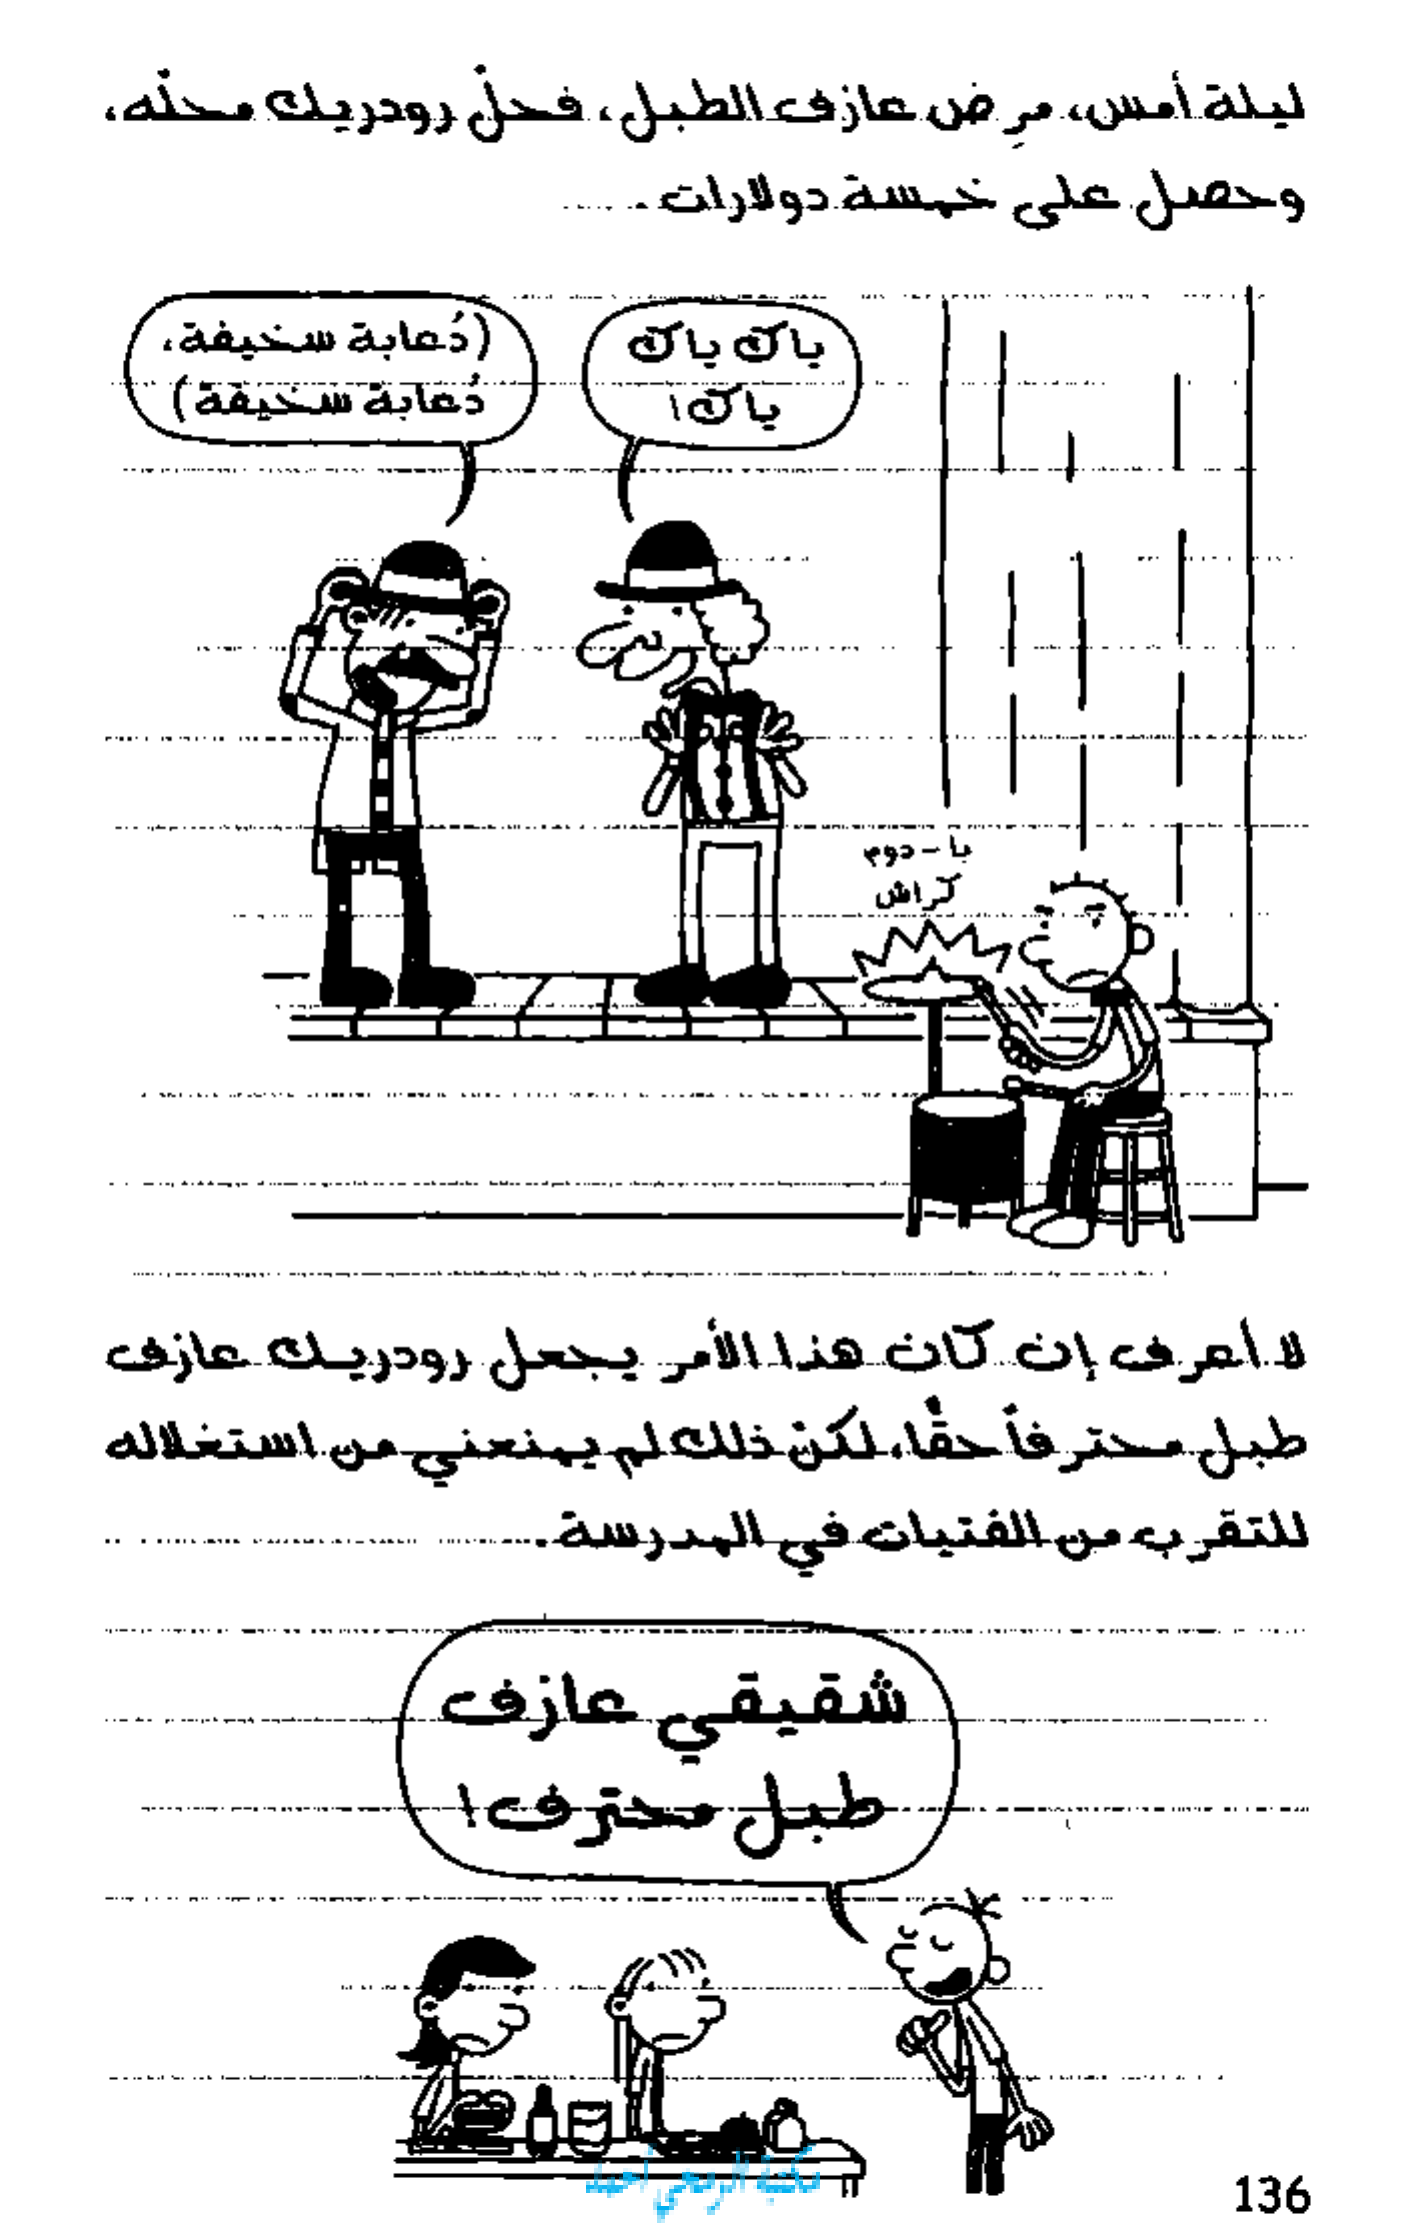 ليلة أمس، مرِض عازف الطبل، فحلّ رودريك محلّه،
وحصل على خمسة دولارات.
ياك ياك
ياك!
(دُعابة سخيفة،
دُعابة سخيفة)
با-دوم
كراش
لا أعرف إن كان هذا الأمر يجعل رودريك عازف
طبل محترفاً حقًّا، لكنّ ذلك لم يمنعني من استغلاله
للتقرب من الفتيات في المدرسة.
شقيقي عازف
طبل محترف!
136